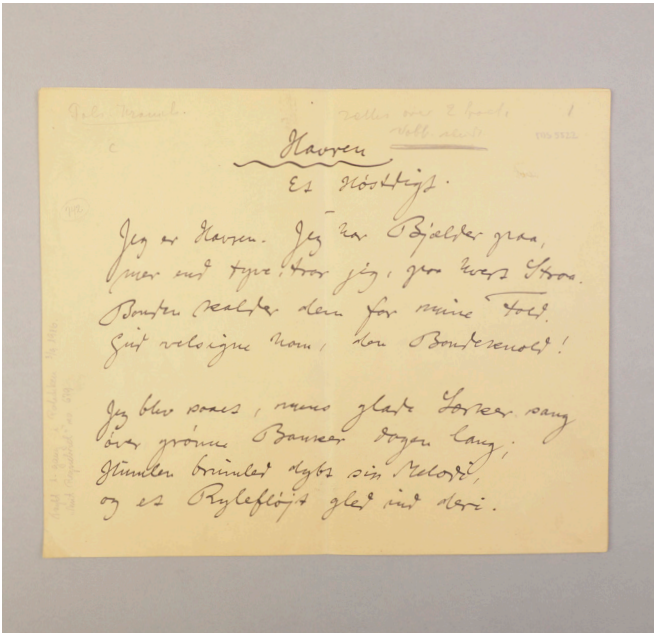 Havren
Et Høstdigt.
Jeg er Havren. Jeg har Bjælder paa,
mer end tyve, tror jeg, paa hvert Straa.
Bonden kalder dem for mine Fold.
Gud velsigne ham, den Bondeknold!
Jeg blev saaet, mens glade Lærker sang
over grønne Banker dagen lang;
Humlen brumled dybt sin Melodi,
og et Rylefløjt gled ind deri.